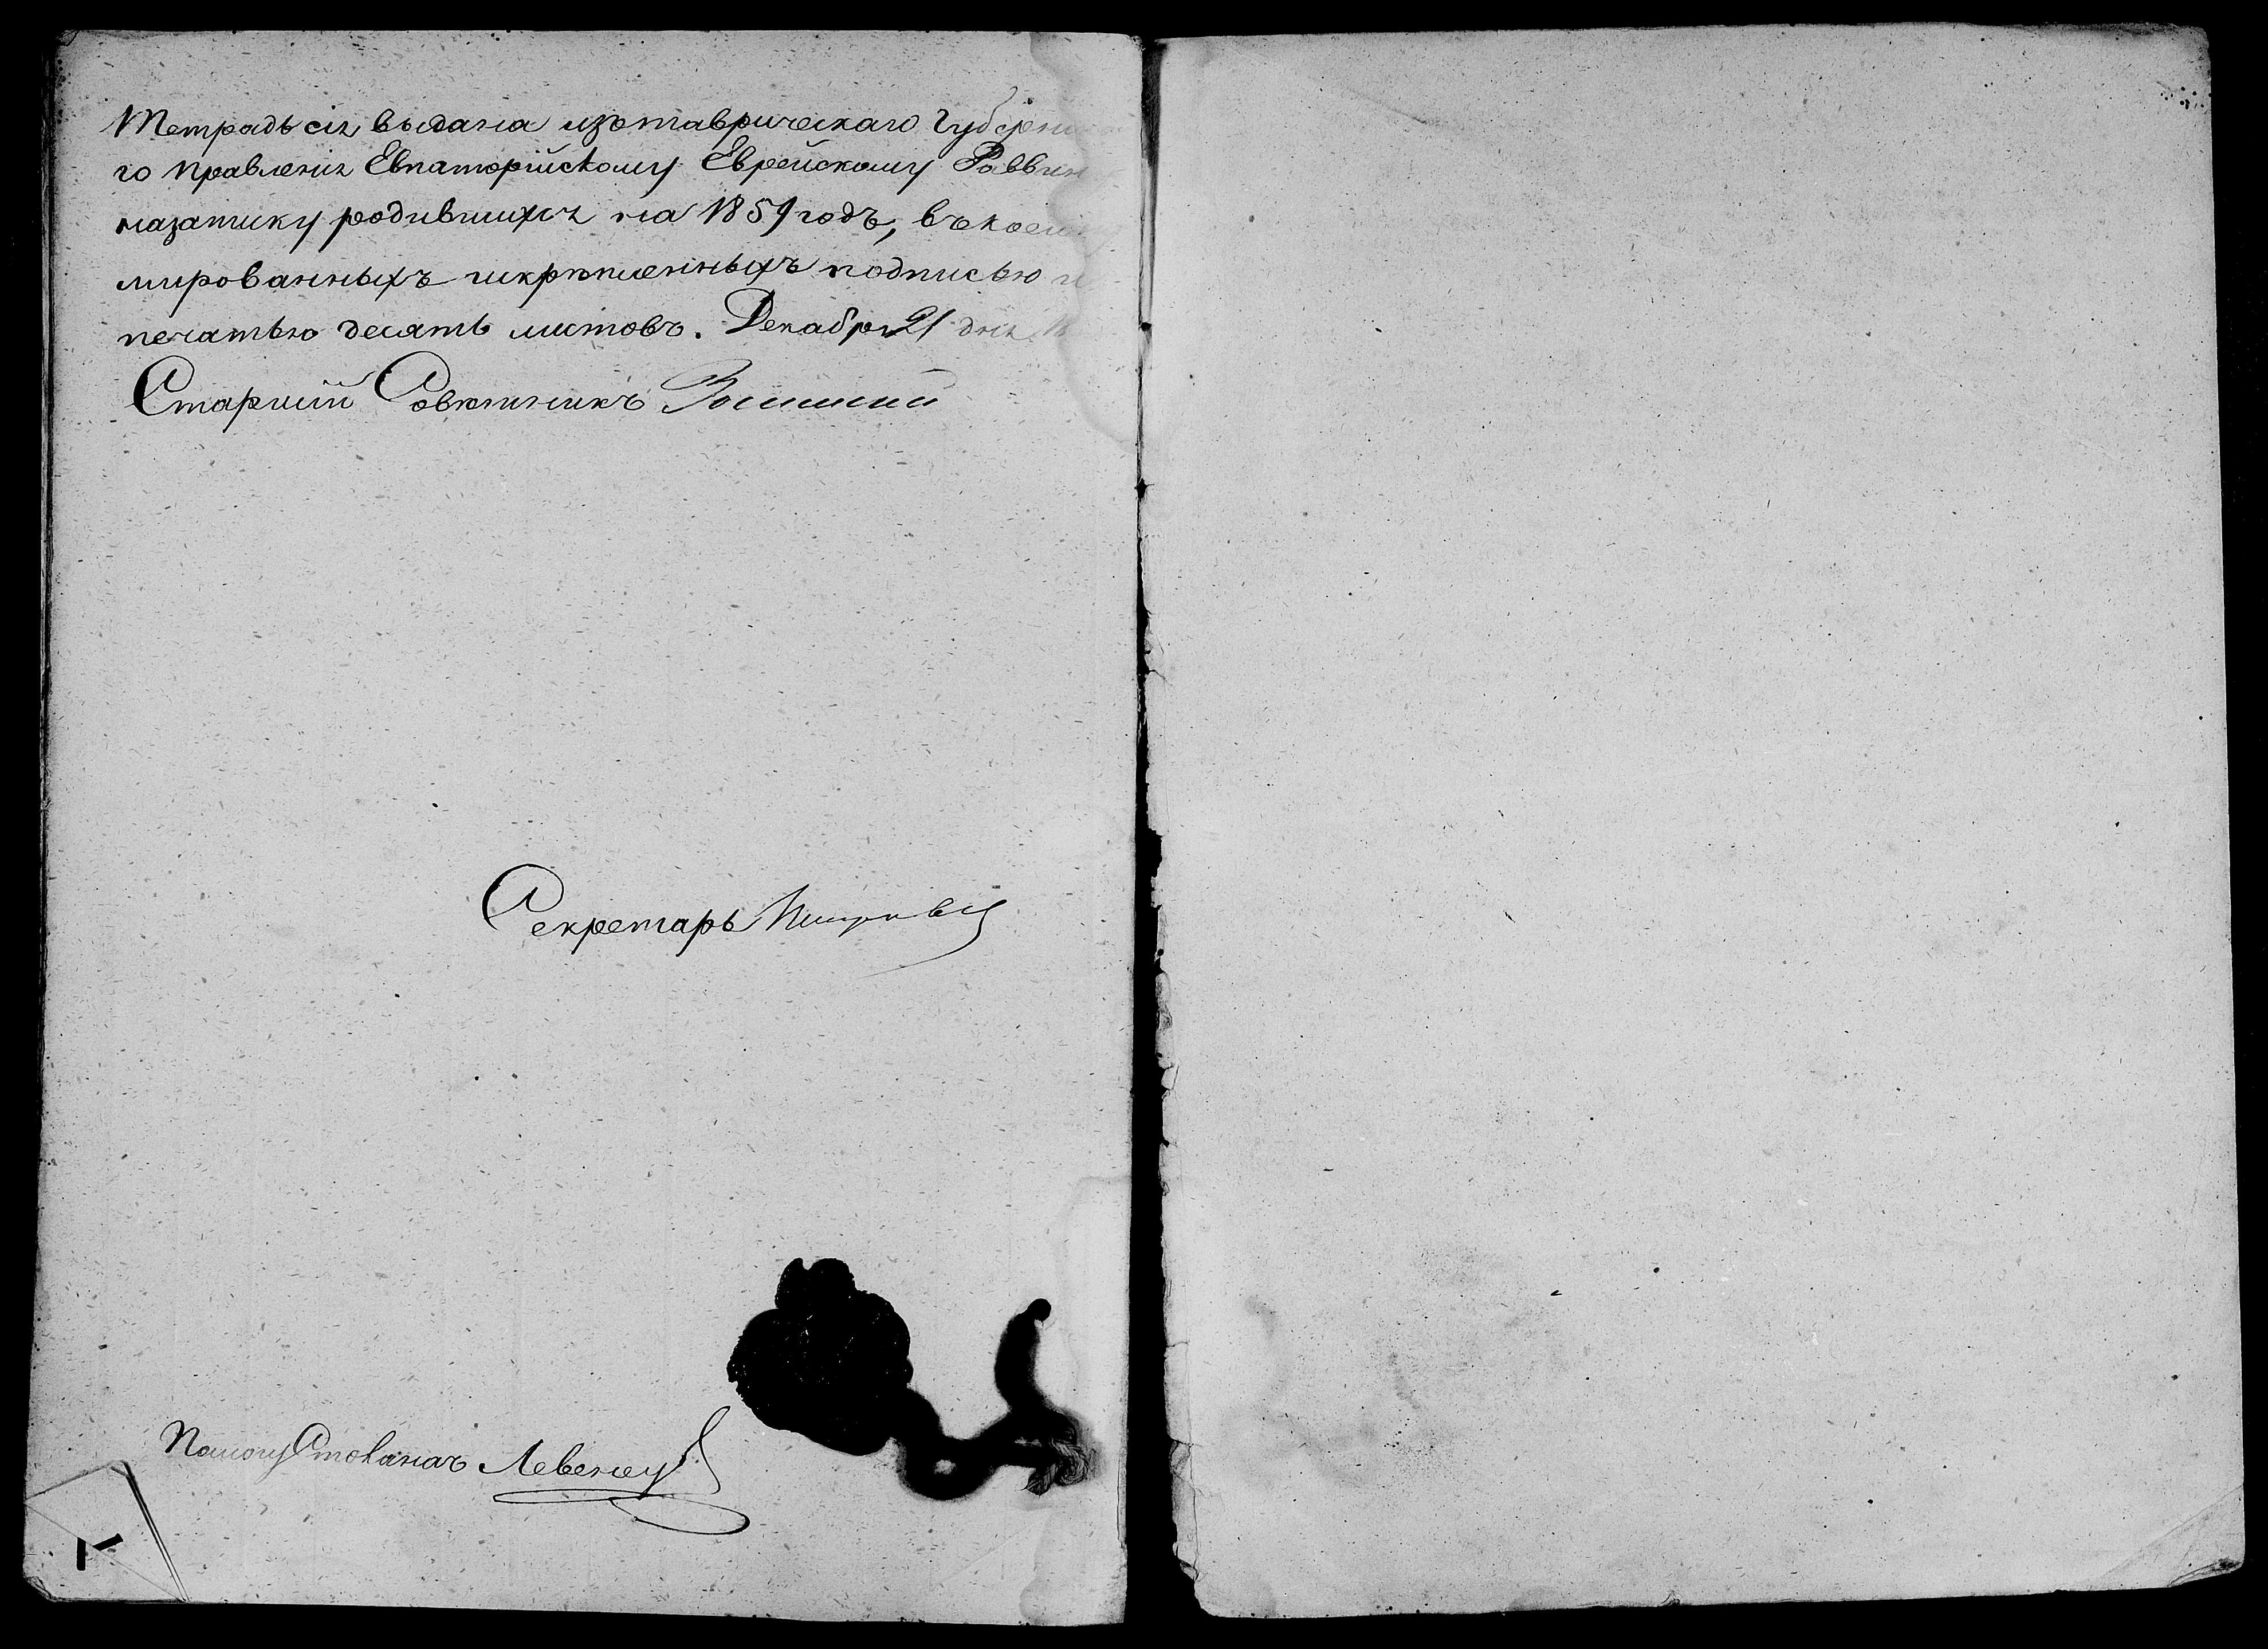 Тетрадь сія выдана изъ таврическаго Губернс
го Правленія Евпаторійскому Еврейскому Раввин
на записку родившихся на 1859 годъ, въ коей
мированныхъ и скрѣпленныхъ подписью и
печатью десять листовъ. Декабря 21 дня 18
Старшій Совѣтникъ
Секретарь
Помощ Столонач